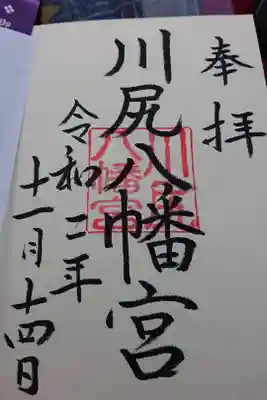 奉拝
川尻八幡宮
川尻八幡宮
令和二年
十一月十四日